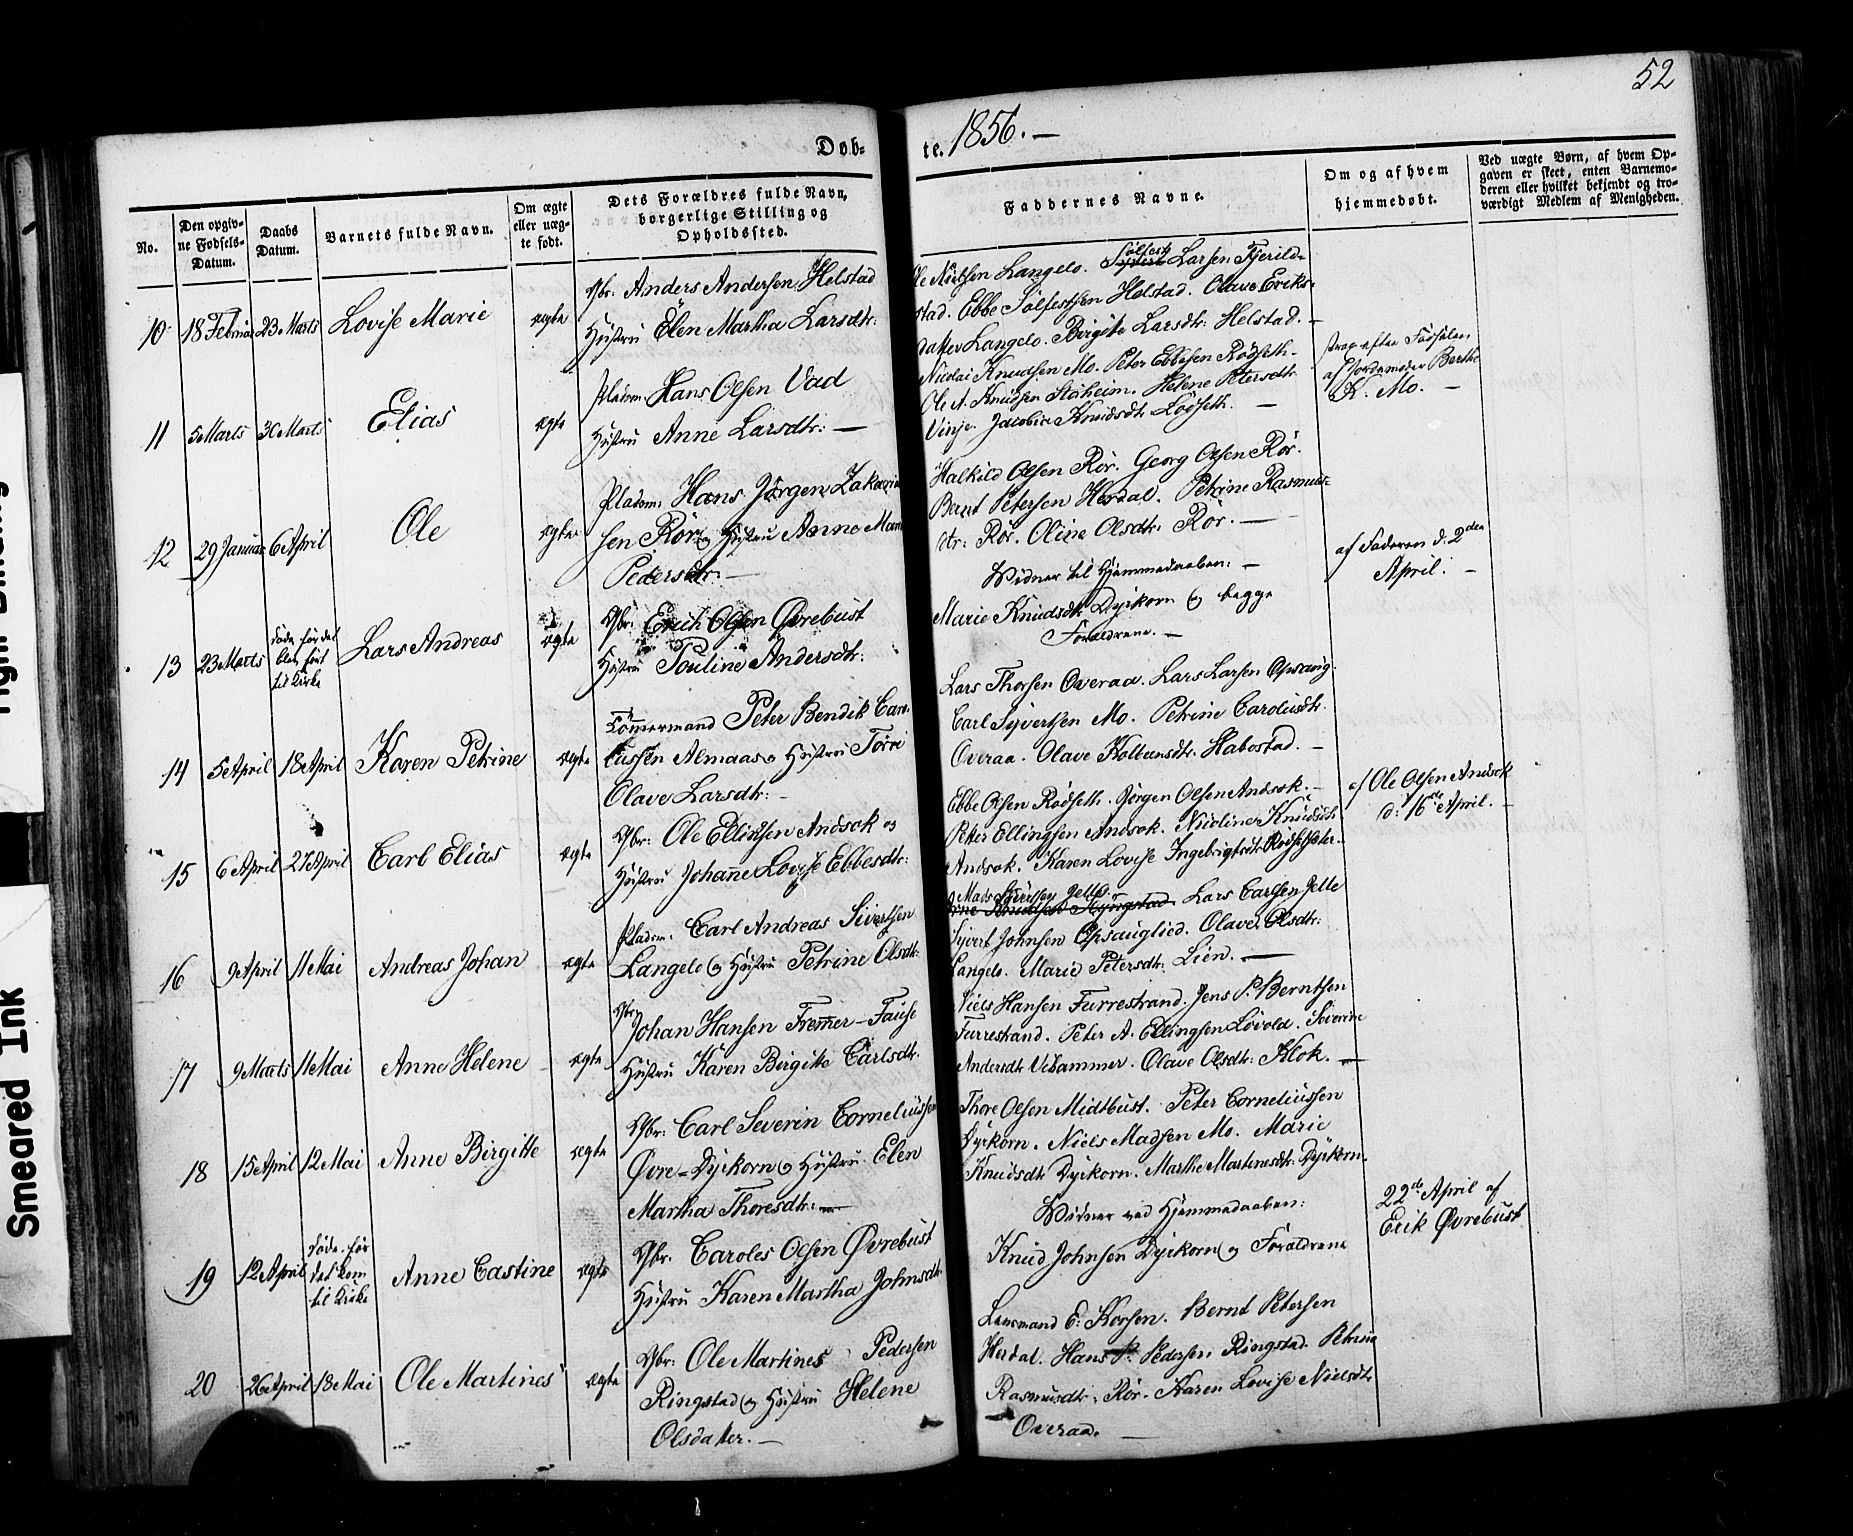 52
Døb-
te. 1856. —
No.
Den opgiv-
ne Fødsels-
Datum.
Daabs
Datum.
Barnets fulde Navn.
Om ægte
eller uæg-
te født.
Dets Forældres fulde Navn,
borgerlige Stilling og
Opholdssted.
Faddernes Navne.
Om og af hvem
hjemmedøbt.
Ved uægte Børn, af hvem Op-
gaven er skeet, enten Barnemo-
deren eller hvilket bekjendt og tro-
værdigt Medlem af Menigheden.
10 18 Februar 23 Marts Lovise Marie ægte
Gbr: Anders Andersen Helstad
Hustru Elen Martha Larsdtr:
Ole Nielsen Langelo. Sølfest Larsen Fjerild-
stad. Ebbe Sølfestsen Helstad. Olave Eriks-
datter Langelo. Birgite Larsdtr: Helstad. —
11 5 Marts 30 Marts Elias ægte
Pladsm: Hans Olsen Vad
Hustru Anne Larsdtr: —
Nicolai Knudsen Mo. Peter Ebbesen Rødseth-
Ole A. Knudsen Staheim. Helene Petersdtr
Vinje. Jacobine Knudsdtr Lødseth. —
strax efter Fødselen
af Jordemoder Berthe
K. Mo. —
12 29 Januar 6 April Ole ægte
Pladsm: Hans Jørgen Zakaria
sen Rør og Hustru Anne Marie
Pedersdtr: —
Halkild Olsen Rør. Georg Olsen Rør.
Bernt Petersen Herdal. Petrine Rasmus-
dtr: Rør. Oline Olsdtr: Rør. —
13 23 Marts Døde før det
blev ført
til Kirke
Lars Andreas ægte
Gbr: Erich Olsen Øvrebust
Hustru Pouline Andersdtr:
Vidner til Hjemmedaaben: —
Marie Knudsdtr Dyrkorn og begge
Forældrene. —
af Faderen d. 2den
April. —
14 5 April 18 April Karen Petrine ægte
Tømmermand Peter Bendik Caro-
liussen Almaas og Hustru Torri
Olave Larsdtr: —
Lars Thorsen Overaa. Lars Larsen Opsaug.
Carl Syvertsen Mo. Petrine Caroliusdtr.
Overaa. Olave Kolbensdtr. Habostad. —
15 6 April 27 April Carl Elias ægte
Gbr: Ole Ellingsen Andsok og
Hustru Johanne Lovise Ebbesdtr:
Ebbe Olsen Rødseth. Jørgen Olsen Andsok. —
Peter Ellingsen Andsok. Nicoline Knudsdtr
Andsok. Karen Lovise Ingebrigtsdtr Rødsetsæter.
af Ole Olsen Andsok
d: 16de April. —
16 9 April 11 Mai Andreas Johan ægte
Pladsm: Carl Andreas Sivertsen
Langelo og Hustru Petrine Olsdtr
Mads Syvertsen Gjelle.
Lars Carlsen Gjelle
Syvert Johnsen Opsauglied. Olave Olsdtr:
Langelo. Marie Petersdtr: Lien. —
17 9 Marts 11 Mai Anne Helene ægte
Gbr: Johan Hansen Fremmer-Fause
Hustru Karen Birgitte Carlsdtr.
Niels Hansen Furrestrand. Jens P. Berntsen
Furrestrand. Peter A. Ellingsen Løvold. Severine
Andersdtr Uchammer. Olave Olsdtr: Klok. —
18 15 April 12 Mai Anne Birgitte ægte
Gbr: Carl Severin Corneliussen
Øvre-Dyrkorn og Hustru Elen
Martha Thoresdtr: —
Thore Olsen Midtbust. Peter Corneliussen
Dyrkorn. Niels Madsen Mo. Marie
Knudsdtr Dyrkorn. Marthe Martinusdtr: Dyrkorn.
19 12 April Døde før
det kom
til Kirke
Anne Castine ægte
Gbr. Caroles Olsen Øvrebust
Hustru Karen Martha Johnsdtr.
Vidner ved Hjemmedaaben:
Knud Johnsen Dyrkorn og Forældrene
22de April af
Erik Øvrebust
20 26 April 18 Mai Ole Martines ægte
Gbr: Ole Martines Pedersen
Ringstad og Hustru Helene
Olsdatter. —
Lensmand E: Korsen. Bernt Petersen
Herdal. Hans P. Pedersen Ringstad. Petrine
Rasmusdtr. Rør. Karen Lovise Nielsdtr
Overaa. —
Smeared Ink